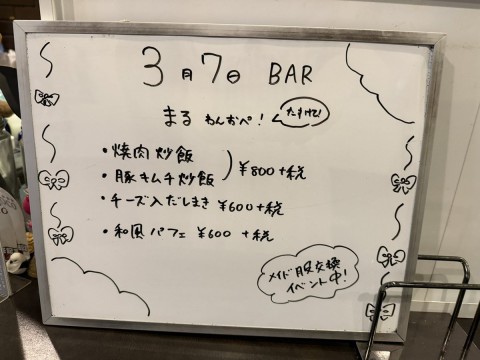 3月7日 BAR
まる わんおぺ！
たすけて！
・焼肉炒飯
・豚キムチ炒飯
¥800+税
・チーズ入だしまき ¥600+税
・和風パフェ ¥600 +税
メイド服交換
イベント中！